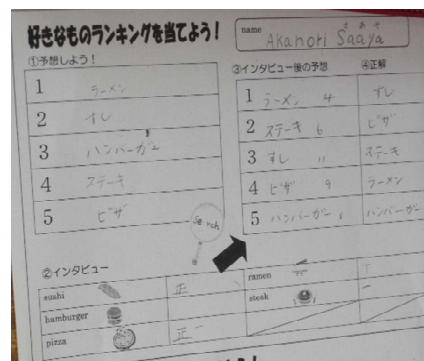 好きなものランキングを当てよう!
name
Akanori Saaya
①予想しよう!
1 ラーメン
2 すし
3 ハンバーガー
4 ステーキ
5 ピザ
③インタビュー後の予想 ④正解
1 ラーメン 4 すし
2 ステーキ 6 ピザ
3 すし 11 ステーキ
4 ピザ 9 ラーメン
5 ハンバーガー ハンバーガー
②インタビュー
sushi 正
hamburger
pizza 正一
ramen
steak